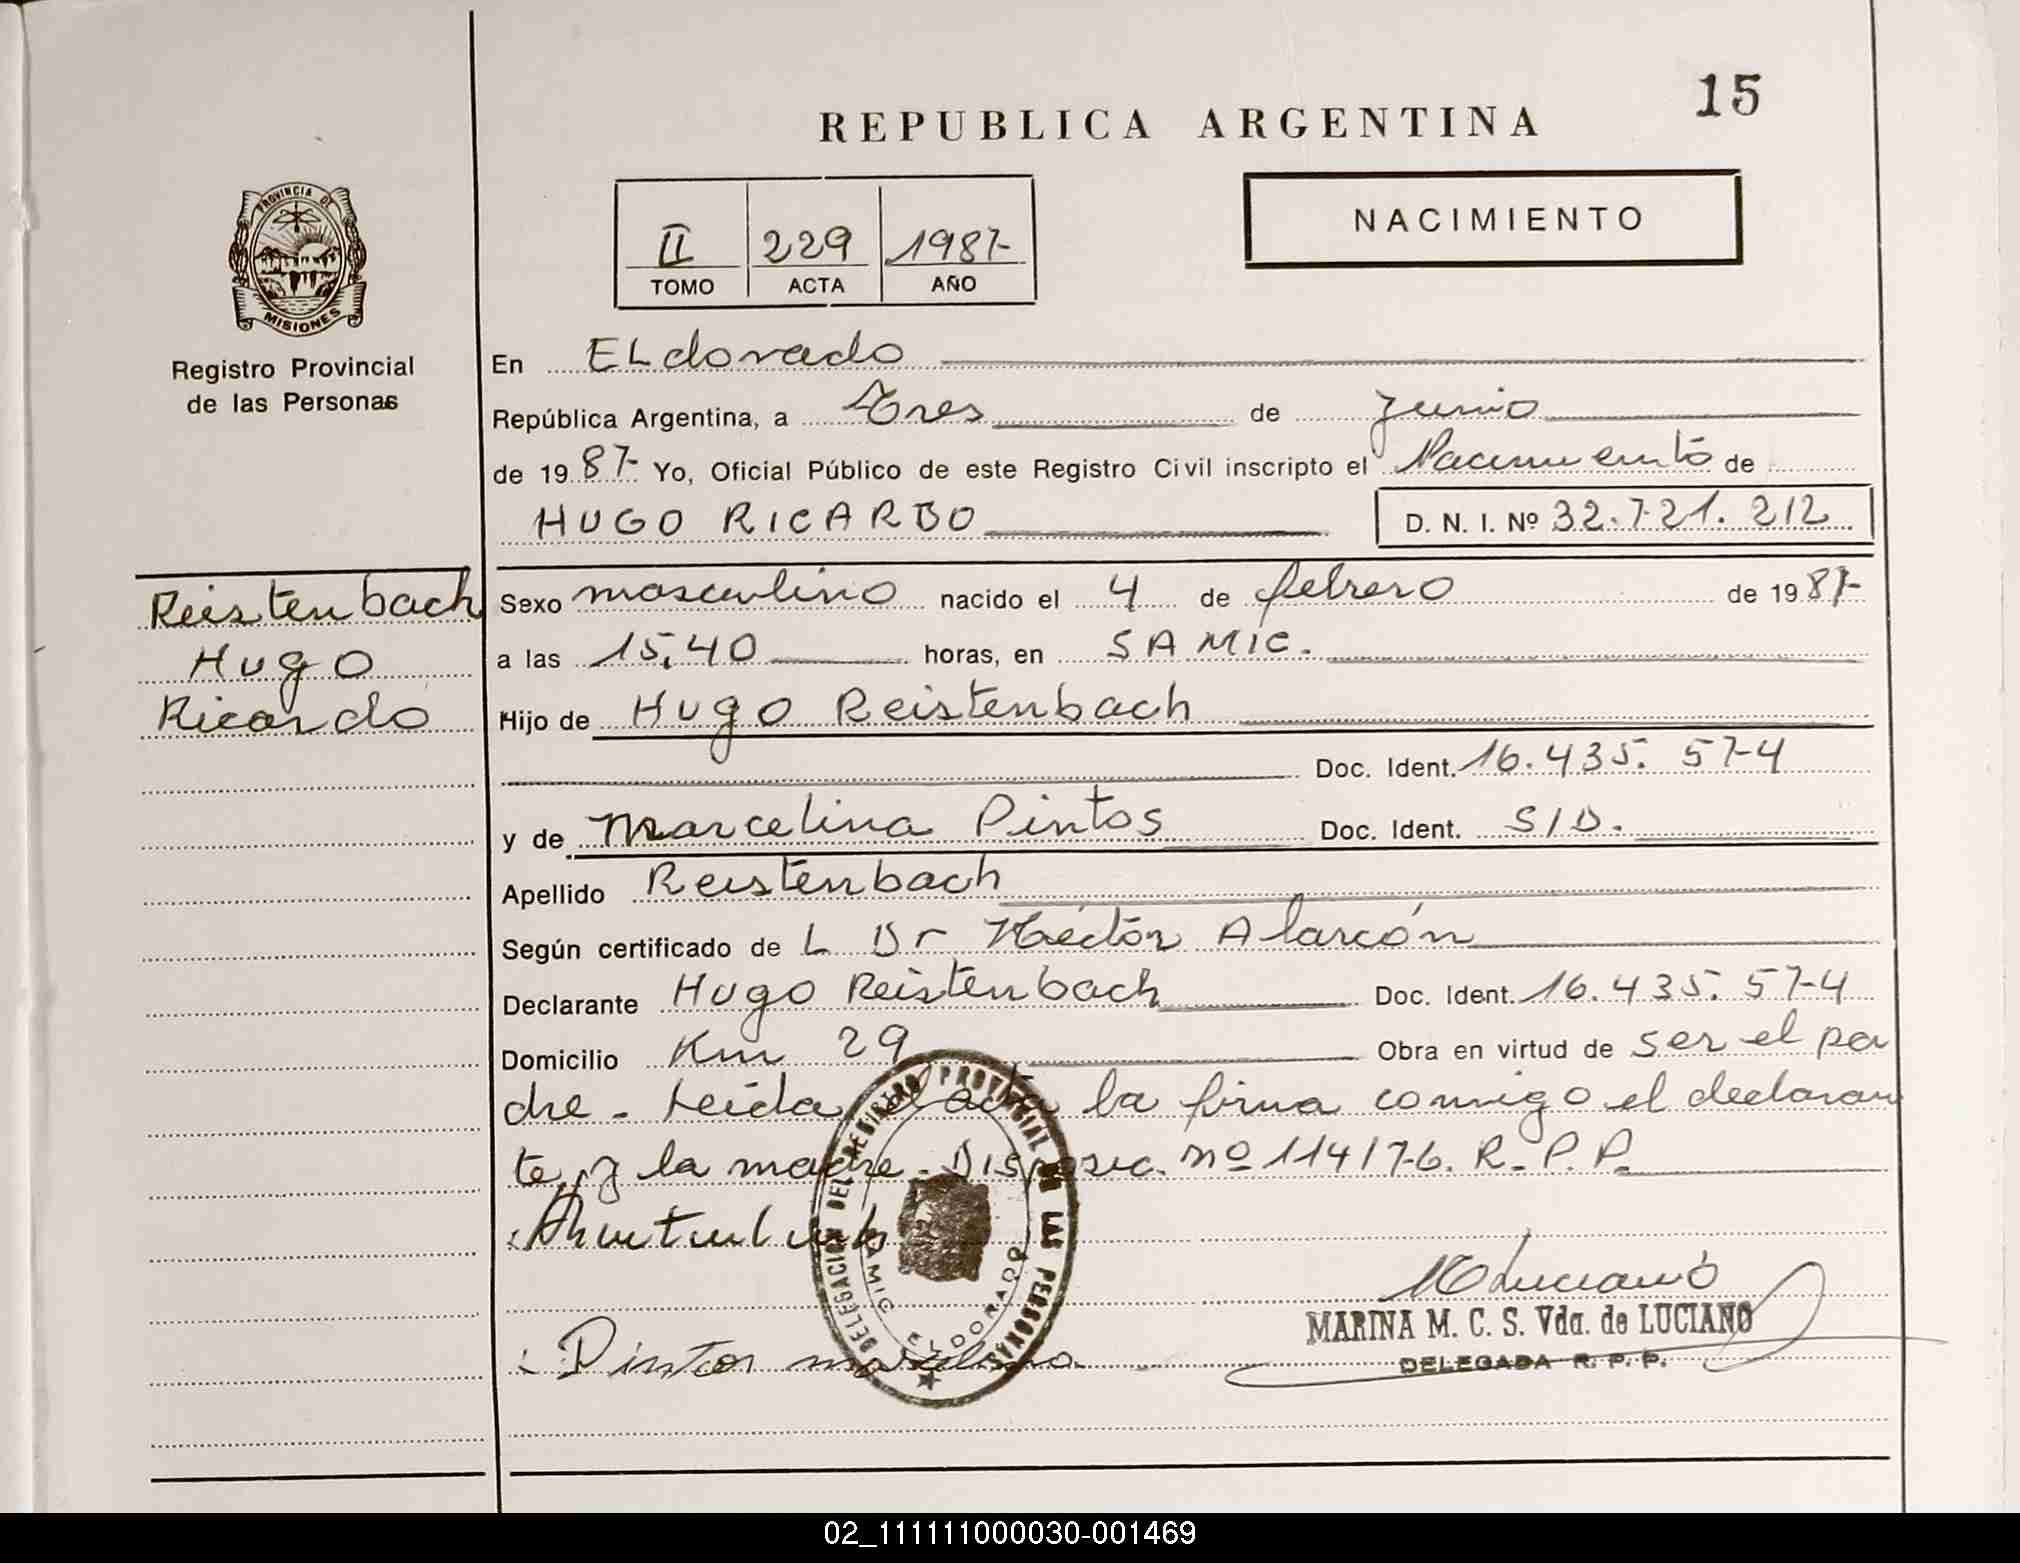 15
REPUBLICA ARGENTINA
NACIMIENTO
II 229 1987-
TOMO ACTA AÑO
PROVINCIA DE
MISIONES
Registro Provincial
de las Personas
En ELdorado
República Argentina, a Tres de Junio
de 1987- Yo, Oficial Público de este Registro Civil inscripto el Nacimiento de
HUGO RICARDO D. N. I. Nº 32.721.212
Reistenbach
Hugo
Ricardo
Sexo masculino nacido el 4 de febrero de 1987-
a las 15,40 horas, en SAMIC.
Hijo de Hugo Reistenbach
Doc. Ident. 16.435.574
y de Marcelina Pintos Doc. Ident. S/D.
Apellido Reistenbach
Según certificado de L Dr Héctor Alarcón
Declarante Hugo Reistenbach Doc. Ident. 16.435.574
Domicilio Km 29 Obra en virtud de ser el pa
dre - Leída el acta la firma conmigo el declaran
te, y la madre - Disposic. nº 114/76. R.P.P.
DELEGACION DEL REGISTRO PROVINCIAL DE LAS PERSONAS
SAMIC ELDORADO
Luciano
MARINA M. C. S. Vda. de LUCIANO
DELEGADA R. P. P.
Pintos marcelina
02_111111000030-001469